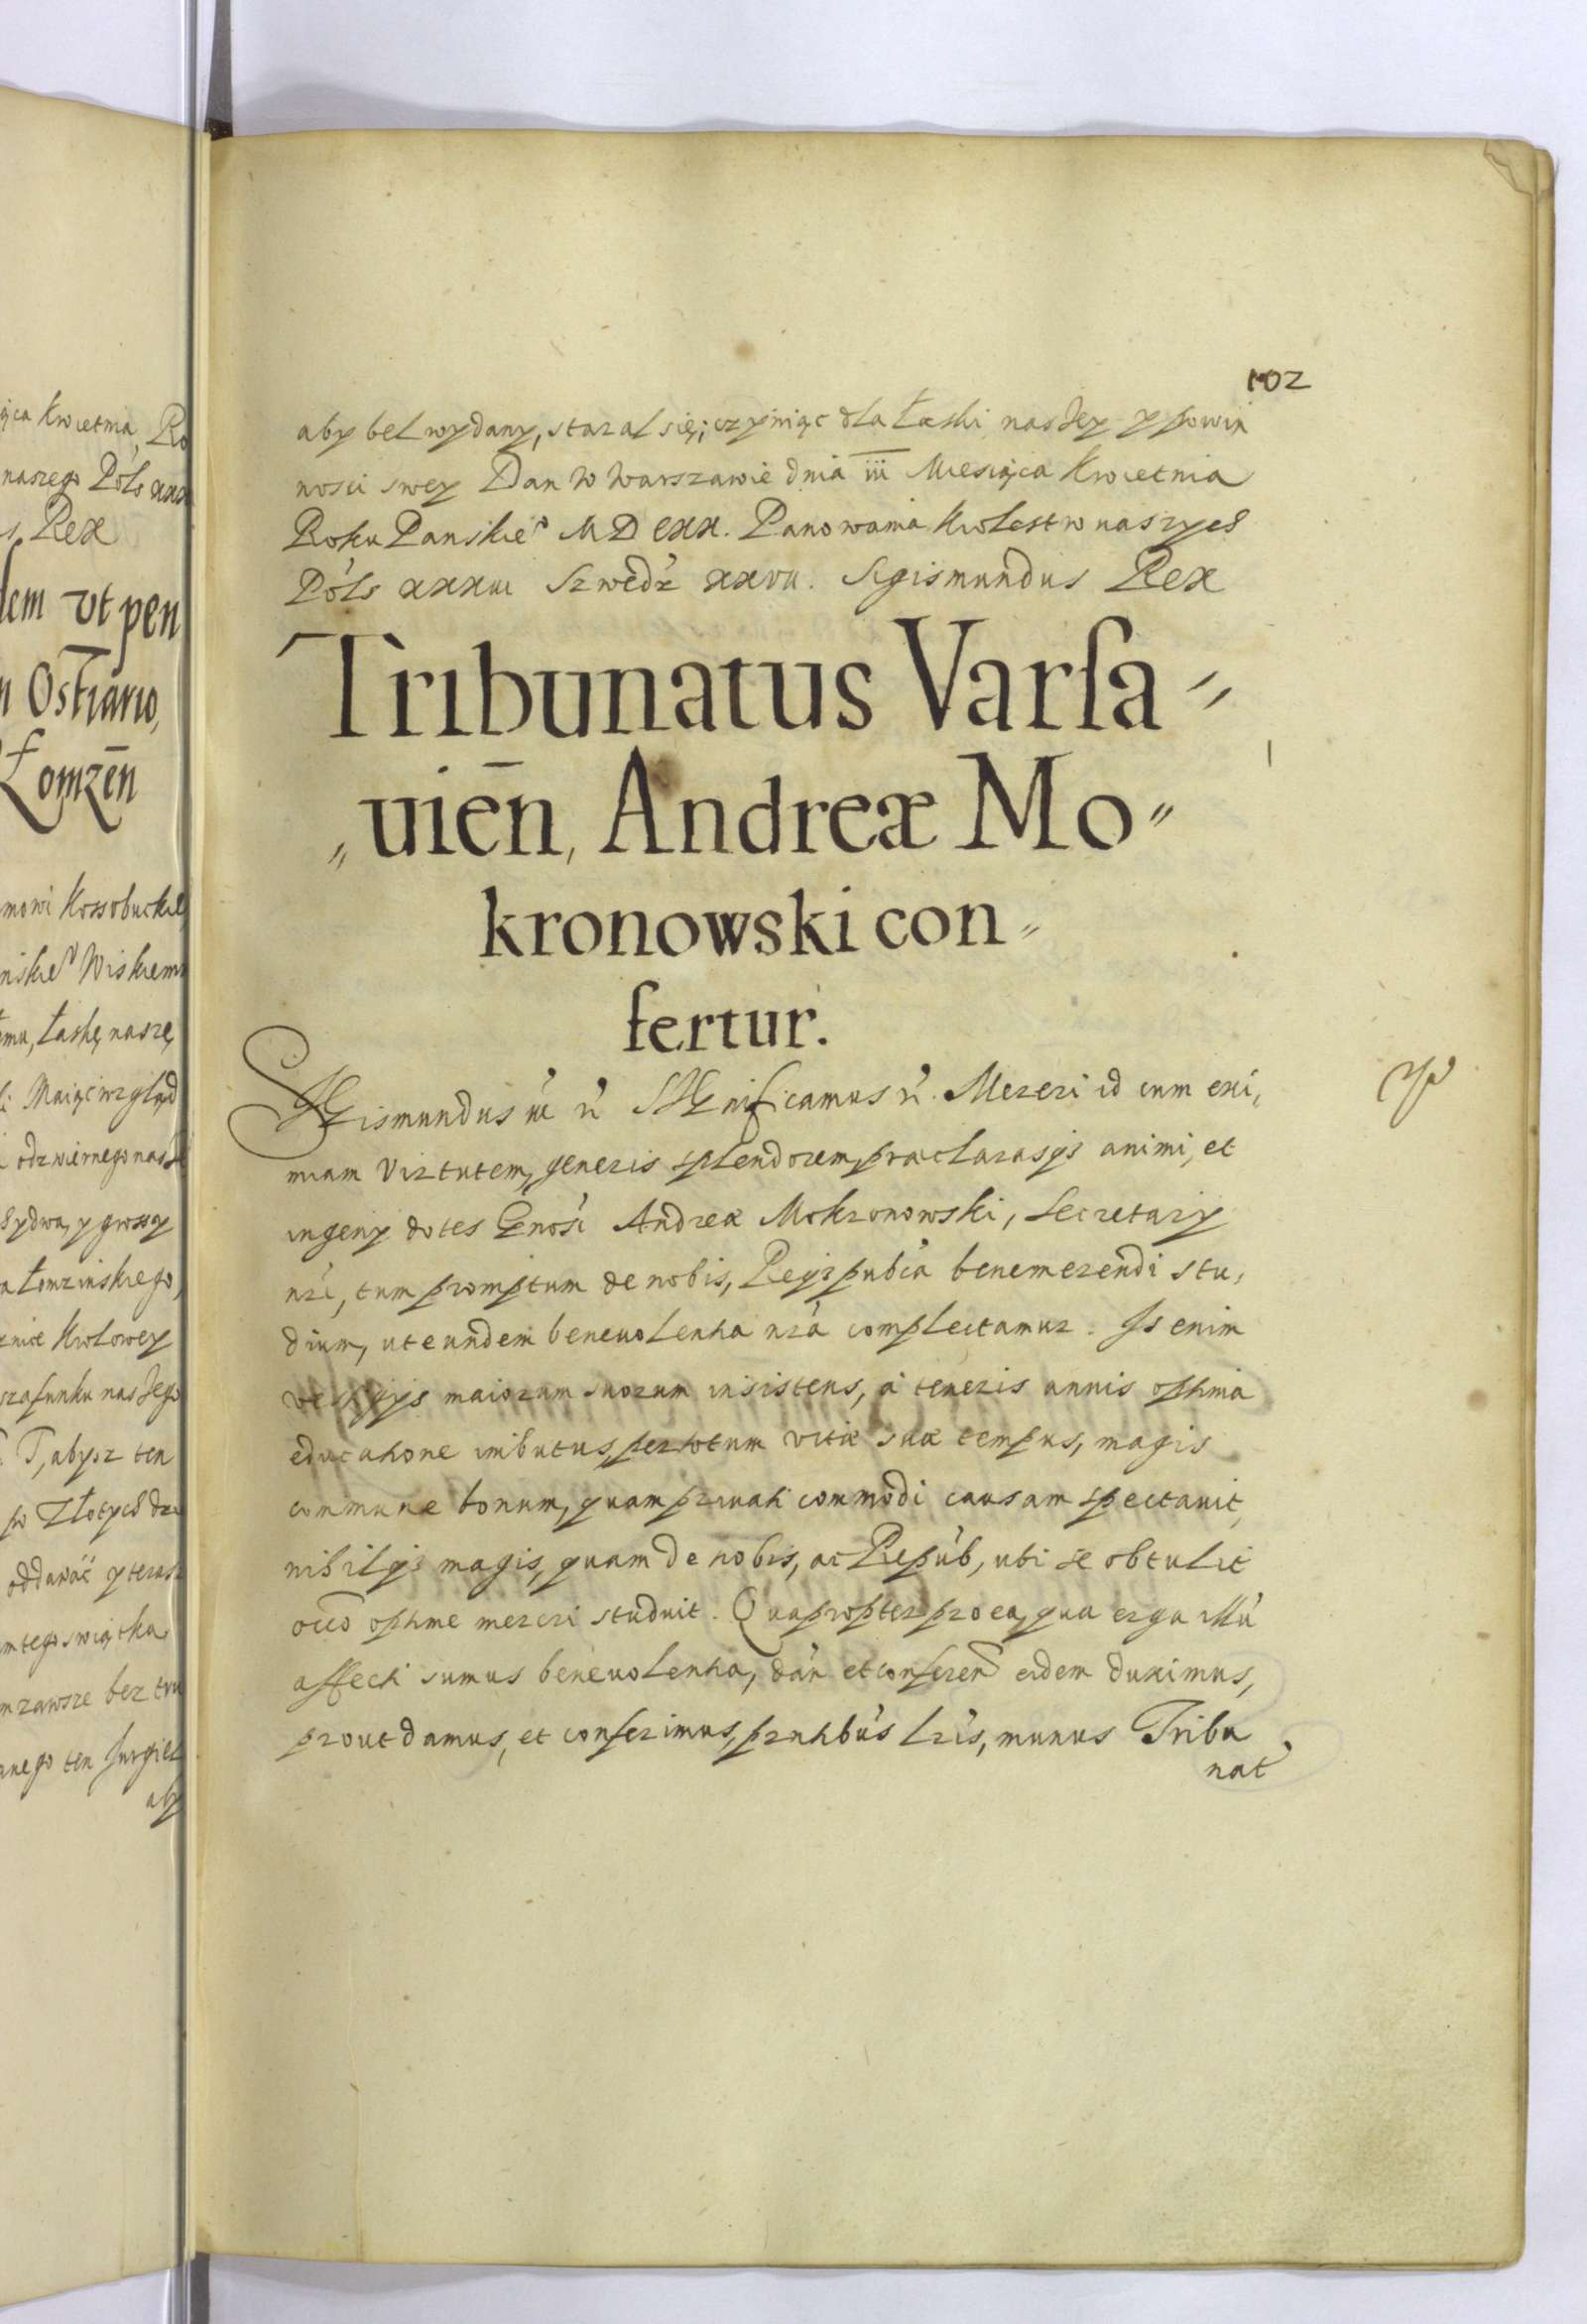 102
aby bel wydany, staral się; czyniąc dla łaski naszey y powin
nosci swey Dan w Warszawie dnia iii Miesiąca Kwietnia
Roku Panskie° MDCXX. Panowania Krolestw naszych
Póls xxxiii Szwedz xxvii. Sigismundus Rex
Tribunatus Varsa=
=uień, Andreæ Mo=
kronowski con=
fertur.
Sigismundus iii ń Significamus ń. Mereri id cum exi,
miam Virtutem, generis splendorem, præclarasq́s animi, et
ingenij dotes Gnosi Andreæ Mokronowski, Secretarij
nri, tum promptum de nobis, Reiq́s pubca benemerendi stu,
dium, ut eundem beneuolentia nra complectamur. Is enim
vestigijs maiorum suorum insistens, à teneris annis optima
educatione imbutus, per totum vitæ suæ tempus, magis
commune bonum, quam priuati commodi causam spectauit,
nihilq́s magis, quam de nobis, ac Repúb, ubi se obtulit
occō optime mereri studuit. Quapropter pro ea, qua erga illú
affecti sumus beneuolentia, dań et conferen eidem duximus,
prout damus, et conferimus, prntibús lrís, munus Tribu
nat
ąca Kwietnia, Ro
naszego Póls xxx
s Rex
dem vt pen
n Ostiario,
Łomzeń
mowi Kossobuckie
niskie° Wiskiem
emu, łaskę naszę,
Maiąc wzgląd
odzwiernego nasze
y grossy
a Łomzinskiego,
Krolowey
szafunku naszego
T, abysz ten
po Złotych
oddawać y teras
m tego swiątka,
m zawsze bez tru
nnego ten Jurgielt
aby